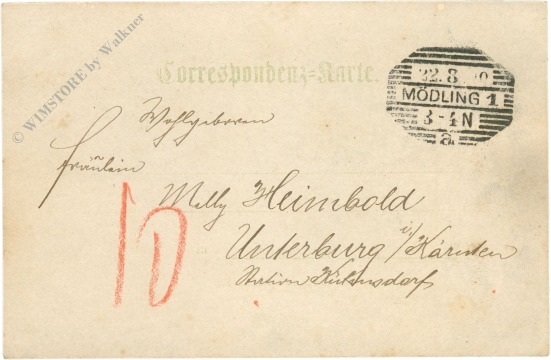 © WIMSTORE by Walkner
Correspondenz-Karte.
22.8 0
MÖDLING 1
3-4N
a
Wohlgeboren
Fräulein
Melly Heimbold
Unterburg i/Kärnten
Station Kühnsdorf
10